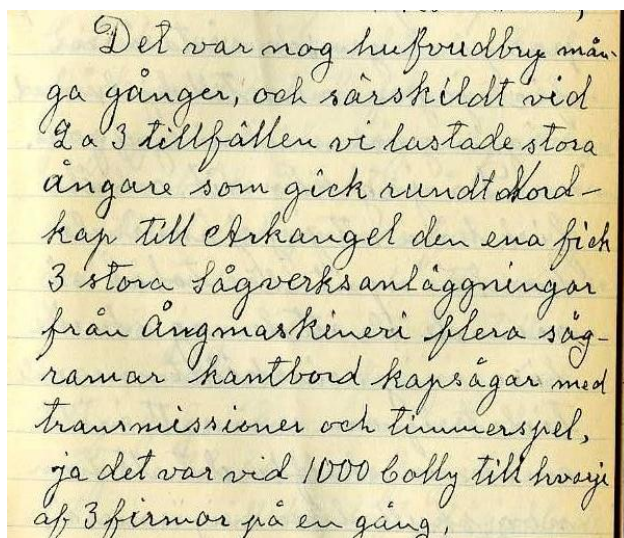 Det var nog hufvudbry mån-
ga gånger, och särskildt vid
2 a 3 tillfällen vi lastade stora
ångare som gick rundt Nord-
kap till Arkangel den ena fick
3 stora Sågverksanläggningar
från Ångmaskineri flera såg-
ramar kantbord kapsågar med
transmissioner och timmerspel,
ja det var vid 1000 Colly till hvarje
af 3 firmor på en gång,